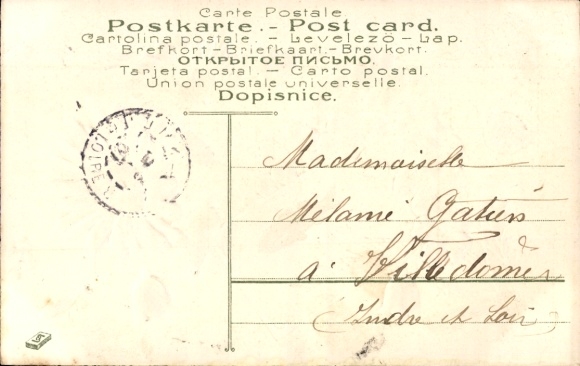 Carte Postale
Postkarte.- Post card.
Cartolina postale. - Levelezö - Lap.
Brefkort - Briefkaart.- Brevkort.
ОТКРЫТОЕ ПИСЬМО.
Tarjeta postal. - Carto postal.
Union postale universelle.
Dopisnice.
Mademoiselle
Mélanie
à Villedômer
(Indre et Loir